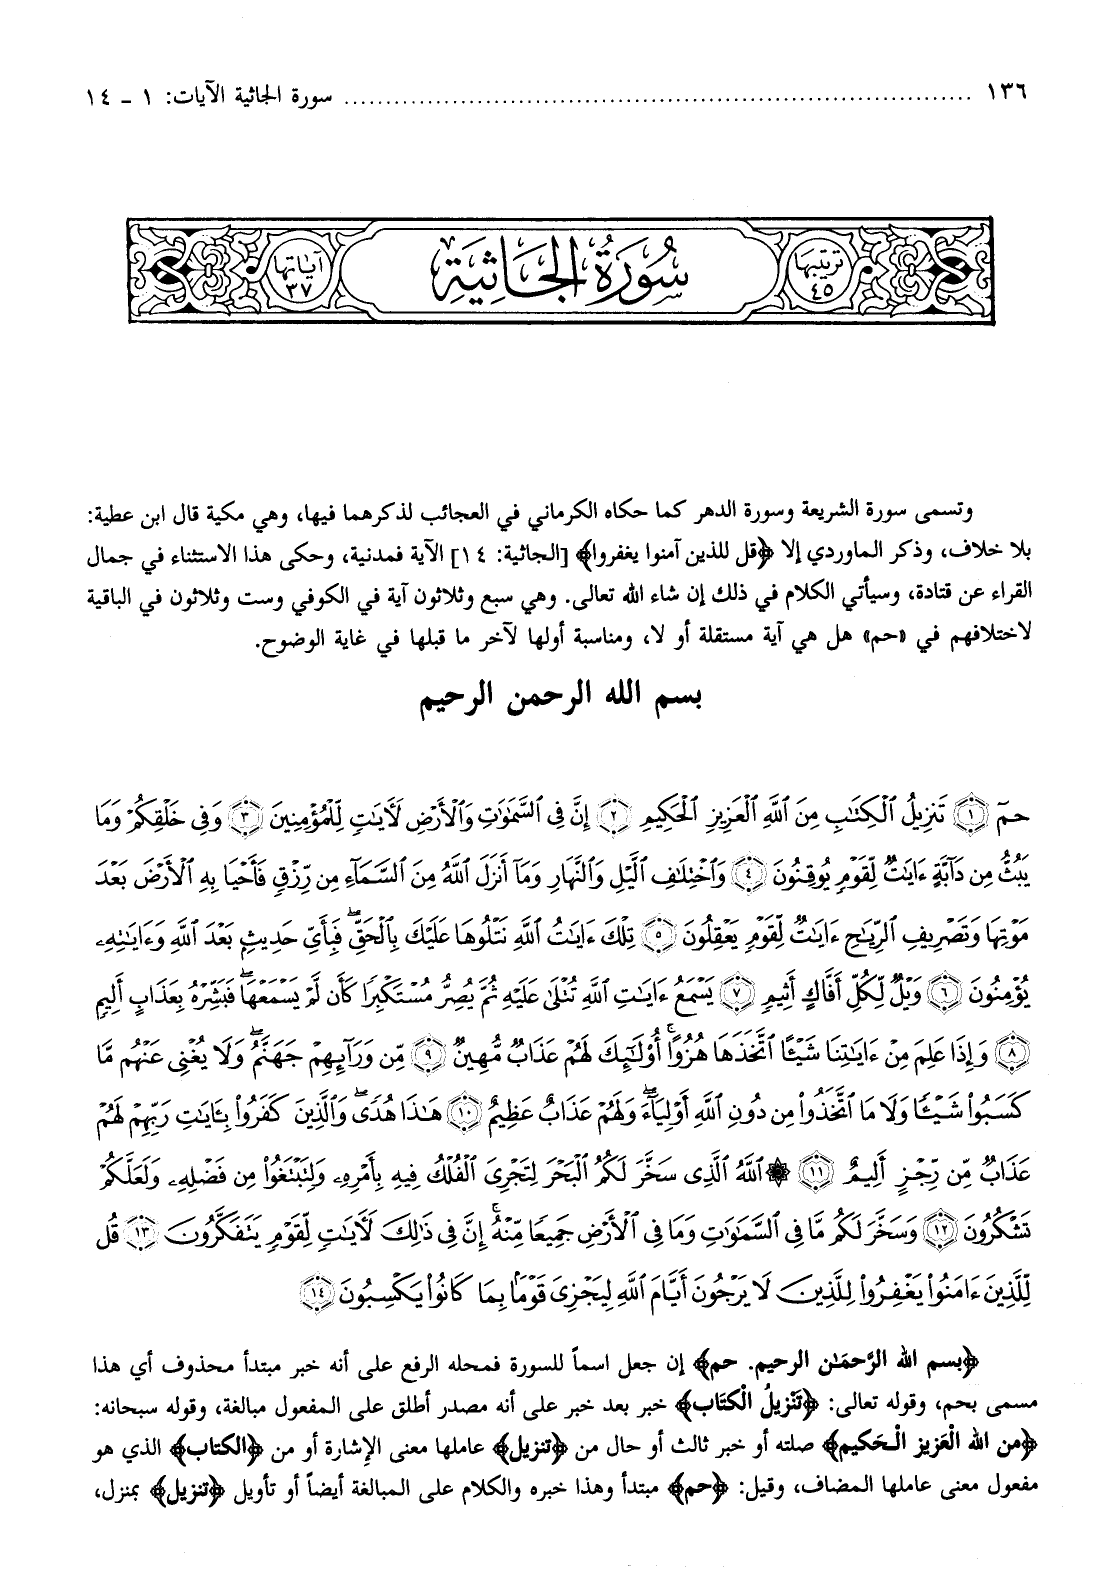 ١٣٦ ........................................ سورة الجاثية الآيات: ١ - ١٤
ترتيبها ٤٥ سُورَةُ الجَاثِيَة آيَاتها ٣٧
وتسمى سورة الشريعة وسورة الدهر كما حكاه الكرماني في العجائب لذكرهما فيها، وهي مكية قال ابن عطية:
بلا خلاف، وذكر الماوردي إلا ﴿قل للذين آمنوا يغفروا﴾ [الجاثية: ١٤] الآية فمدنية، وحكى هذا الاستثناء في جمال
القراء عن قتادة، وسيأتي الكلام في ذلك إن شاء الله تعالى. وهي سبع وثلاثون آية في الكوفي وست وثلاثون في الباقية
لاختلافهم في «حم» هل هي آية مستقلة أو لا، ومناسبة أولها لآخر ما قبلها في غاية الوضوح.
بسم الله الرحمن الرحيم
حمٓ ۝١ تَنزِيلُ ٱلْكِتَٰبِ مِنَ ٱللَّهِ ٱلْعَزِيزِ ٱلْحَكِيمِ ۝٢ إِنَّ فِى ٱلسَّمَٰوَٰتِ وَٱلْأَرْضِ لَءَايَٰتٍ لِّلْمُؤْمِنِينَ ۝٣ وَفِى خَلْقِكُمْ وَمَا
يَبُثُّ مِن دَآبَّةٍ ءَايَٰتٌ لِّقَوْمٍ يُوقِنُونَ ۝٤ وَٱخْتِلَٰفِ ٱلَّيْلِ وَٱلنَّهَارِ وَمَآ أَنزَلَ ٱللَّهُ مِنَ ٱلسَّمَآءِ مِن رِّزْقٍ فَأَحْيَا بِهِ ٱلْأَرْضَ بَعْدَ
مَوْتِهَا وَتَصْرِيفِ ٱلرِّيَٰحِ ءَايَٰتٌ لِّقَوْمٍ يَعْقِلُونَ ۝٥ تِلْكَ ءَايَٰتُ ٱللَّهِ نَتْلُوهَا عَلَيْكَ بِٱلْحَقِّۖ فَبِأَىِّ حَدِيثٍۭ بَعْدَ ٱللَّهِ وَءَايَٰتِهِۦ
يُؤْمِنُونَ ۝٦ وَيْلٌ لِّكُلِّ أَفَّاكٍ أَثِيمٍ ۝٧ يَسْمَعُ ءَايَٰتِ ٱللَّهِ تُتْلَىٰ عَلَيْهِ ثُمَّ يُصِرُّ مُسْتَكْبِرًا كَأَن لَّمْ يَسْمَعْهَاۖ فَبَشِّرْهُ بِعَذَابٍ أَلِيمٍ
۝٨ وَإِذَا عَلِمَ مِنْ ءَايَٰتِنَا شَيْـًٔا ٱتَّخَذَهَا هُزُوًاۚ أُو۟لَٰٓئِكَ لَهُمْ عَذَابٌ مُّهِينٌ ۝٩ مِّن وَرَآئِهِمْ جَهَنَّمُۖ وَلَا يُغْنِى عَنْهُم مَّا
كَسَبُوا۟ شَيْـًٔا وَلَا مَا ٱتَّخَذُوا۟ مِن دُونِ ٱللَّهِ أَوْلِيَآءَۖ وَلَهُمْ عَذَابٌ عَظِيمٌ ۝١٠ هَٰذَا هُدًىۖ وَٱلَّذِينَ كَفَرُوا۟ بِـَٔايَٰتِ رَبِّهِمْ لَهُمْ
عَذَابٌ مِّن رِّجْزٍ أَلِيمٌ ۝١١ ۞ ٱللَّهُ ٱلَّذِى سَخَّرَ لَكُمُ ٱلْبَحْرَ لِتَجْرِىَ ٱلْفُلْكُ فِيهِ بِأَمْرِهِۦ وَلِتَبْتَغُوا۟ مِن فَضْلِهِۦ وَلَعَلَّكُمْ
تَشْكُرُونَ ۝١٢ وَسَخَّرَ لَكُم مَّا فِى ٱلسَّمَٰوَٰتِ وَمَا فِى ٱلْأَرْضِ جَمِيعًا مِّنْهُۚ إِنَّ فِى ذَٰلِكَ لَءَايَٰتٍ لِّقَوْمٍ يَتَفَكَّرُونَ ۝١٣ قُل
لِّلَّذِينَ ءَامَنُوا۟ يَغْفِرُوا۟ لِلَّذِينَ لَا يَرْجُونَ أَيَّامَ ٱللَّهِ لِيَجْزِىَ قَوْمًۢا بِمَا كَانُوا۟ يَكْسِبُونَ ۝١٤
﴿بسم الله الرَّحمَٰن الرحيم. حم﴾ إن جعل اسماً للسورة فمحله الرفع على أنه خبر مبتدأ محذوف أي هذا
مسمى بحم، وقوله تعالى: ﴿تَنْزيلُ الْكتَاب﴾ خبر بعد خبر على أنه مصدر أطلق على المفعول مبالغة، وقوله سبحانه:
﴿من الله الْعَزيز الْحَكيم﴾ صلته أو خبر ثالث أو حال من ﴿تنزيل﴾ عاملها معنى الإشارة أو من ﴿الكتاب﴾ الذي هو
مفعول معنى عاملها المضاف، وقيل: ﴿حم﴾ مبتدأ وهذا خبره والكلام على المبالغة أيضاً أو تأويل ﴿تنزيل﴾ بمنزل،